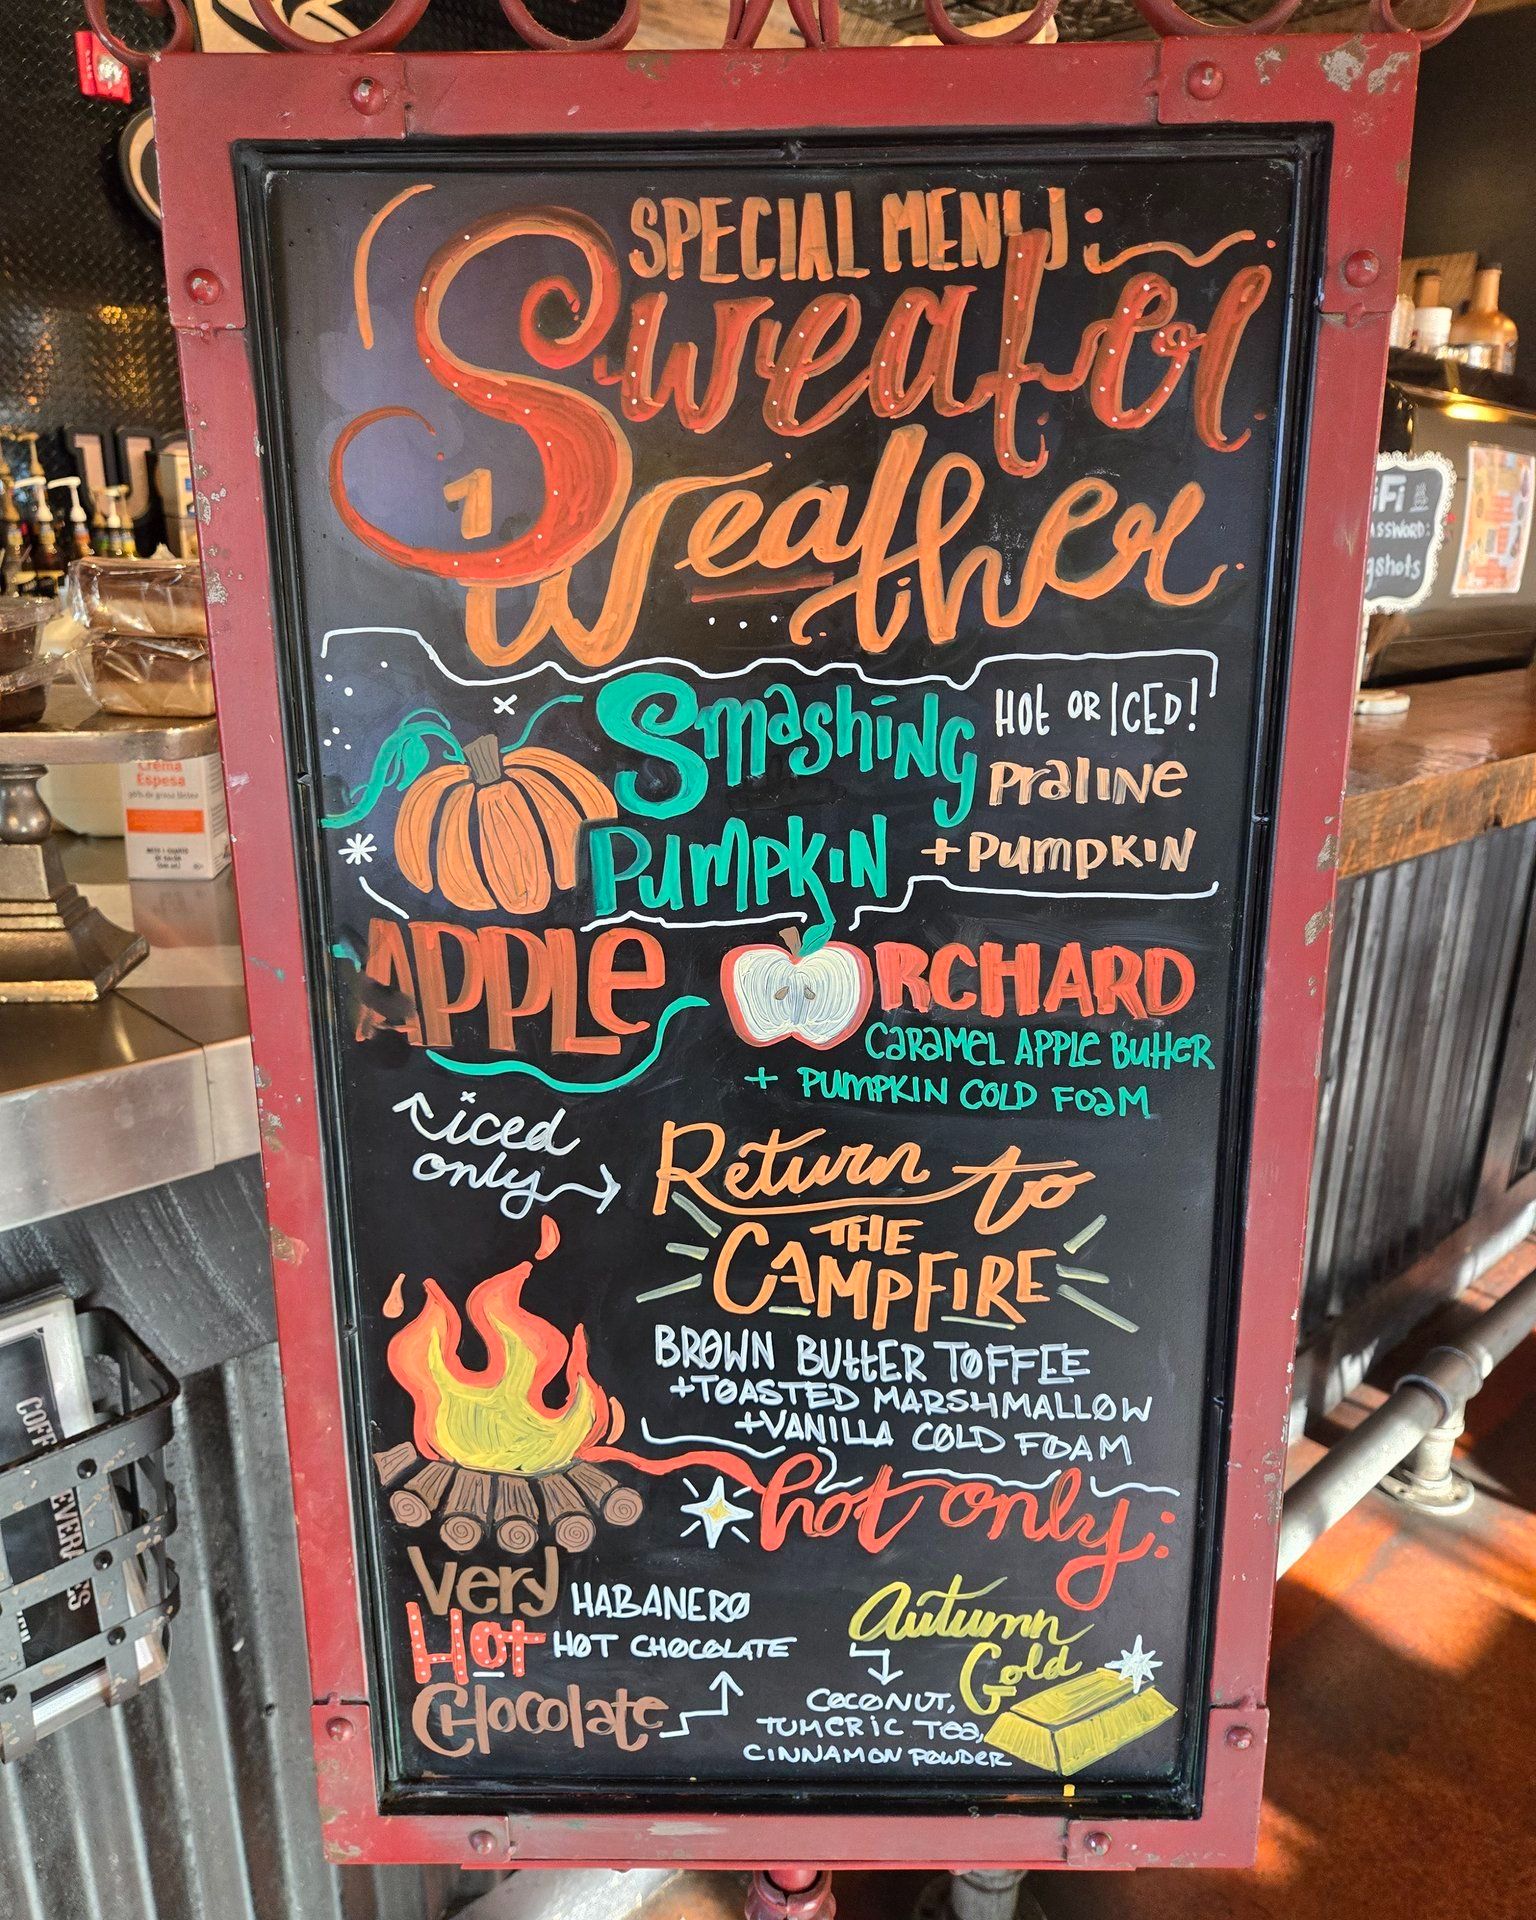 SPECIAL MENU:
Sweater
Weather
Smashing
Pumpkin
HOT OR ICED!
Praline
+ Pumpkin
APPLE ORCHARD
Caramel Apple Butter
+ Pumpkin Cold Foam
iced
only
Return to
THE
CAMPFIRE
BROWN BUTTER TOFFEE
+TOASTED MARSHMALLOW
+VANILLA COLD FOAM
hot only:
Very
Hot
Chocolate
HABANERO
HOT CHOCOLATE
Autumn
Gold
COCONUT,
TUMERIC TEA,
CINNAMON POWDER
Crema
Espesa
PASSWORD:
gshots